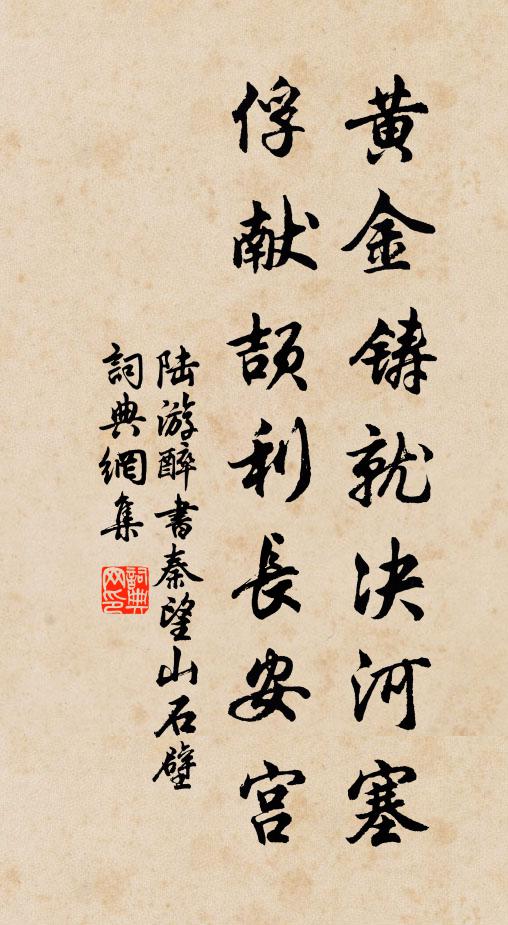 黄金铸就决河塞
俘献頡利長安宫
陆游醉書秦望山石壁
詞典網集
詞典網印